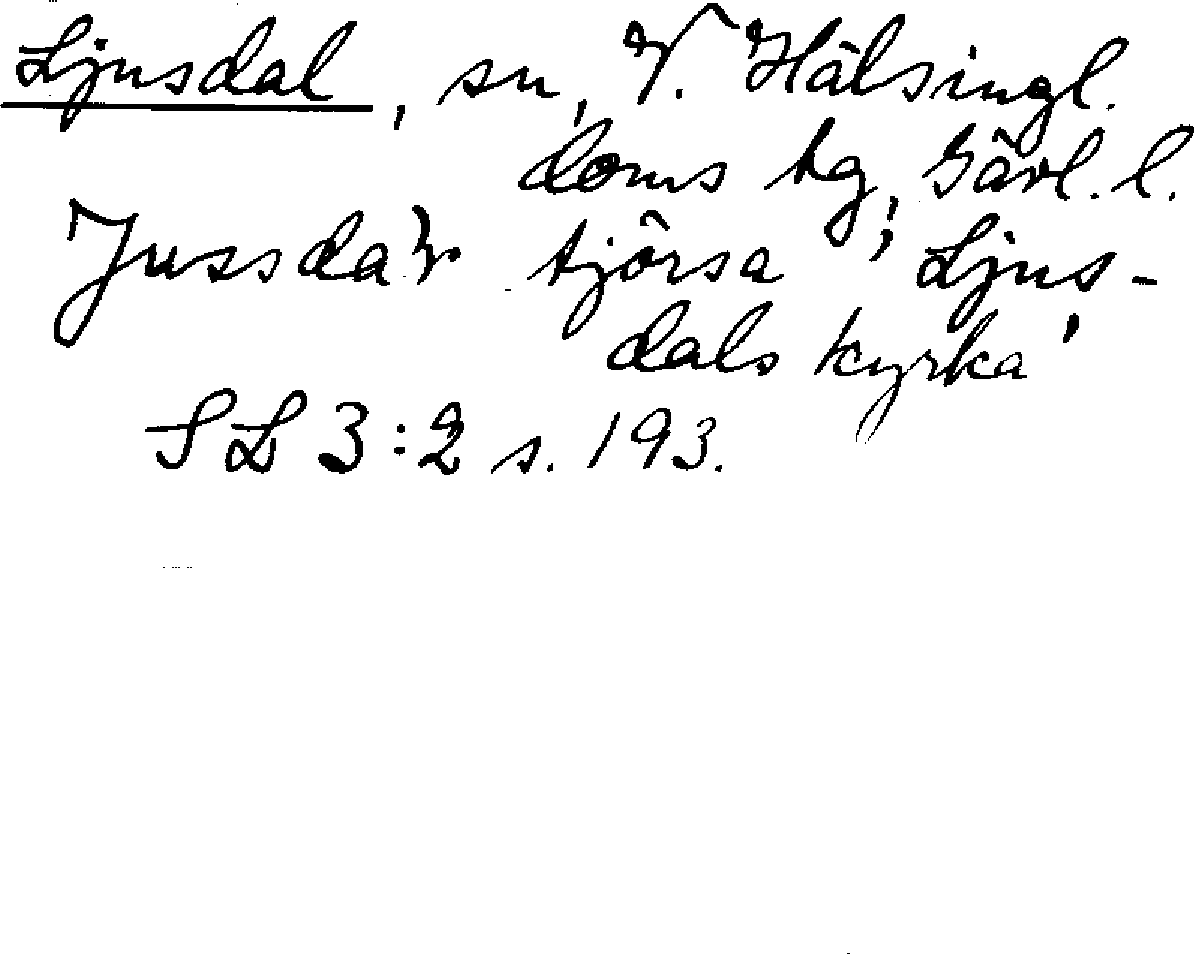 Ljusdal, sn, V. Hälsingl.
doms tg, Gävl. l.
tjörsa 'Ljus-
dals kyrka'
SL 3:2 s. 193.